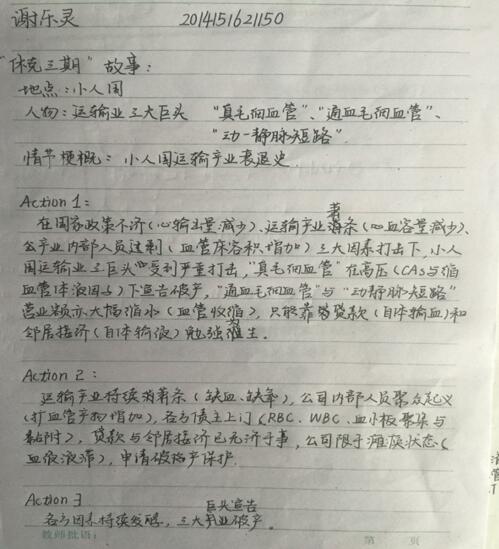 谢乐灵 2014151621150
"休克三期"故事：
地点：小人国
人物：运输业三大巨头 "真毛细血管"、"通血毛细血管"、
"动-静脉短路"
情节梗概：小人国运输产业衰退史
Action 1：
在国家政策不济（心输出量减少）、运输产业萧条（心血容量减少）、
公产业内部人员过剩（血管床容积增加）三大因素打击下，小人
国运输业三巨头受到严重打击，"真毛细血管"在高压（CAs与缩
血管体液因子）下宣告破产，"通血毛细血管"与"动静脉短路"
营业额亦大幅缩水（血管收缩），只能靠贷款（自体输血）和
邻居接济（自体输液）勉强为生。
Action 2：
运输产业持续萧条（缺血、缺氧），公司内部人员聚众起义
（扩血管产物增加），各方债主上门（RBC、WBC、血小板聚集与
黏附），贷款与邻居接济已无济于事，公司限于瘫痪状态（
血液淤滞），申请破产保护.
Action 3
各方因素持续发酵，三大巨头宣告破产。
教师批语： 第 页